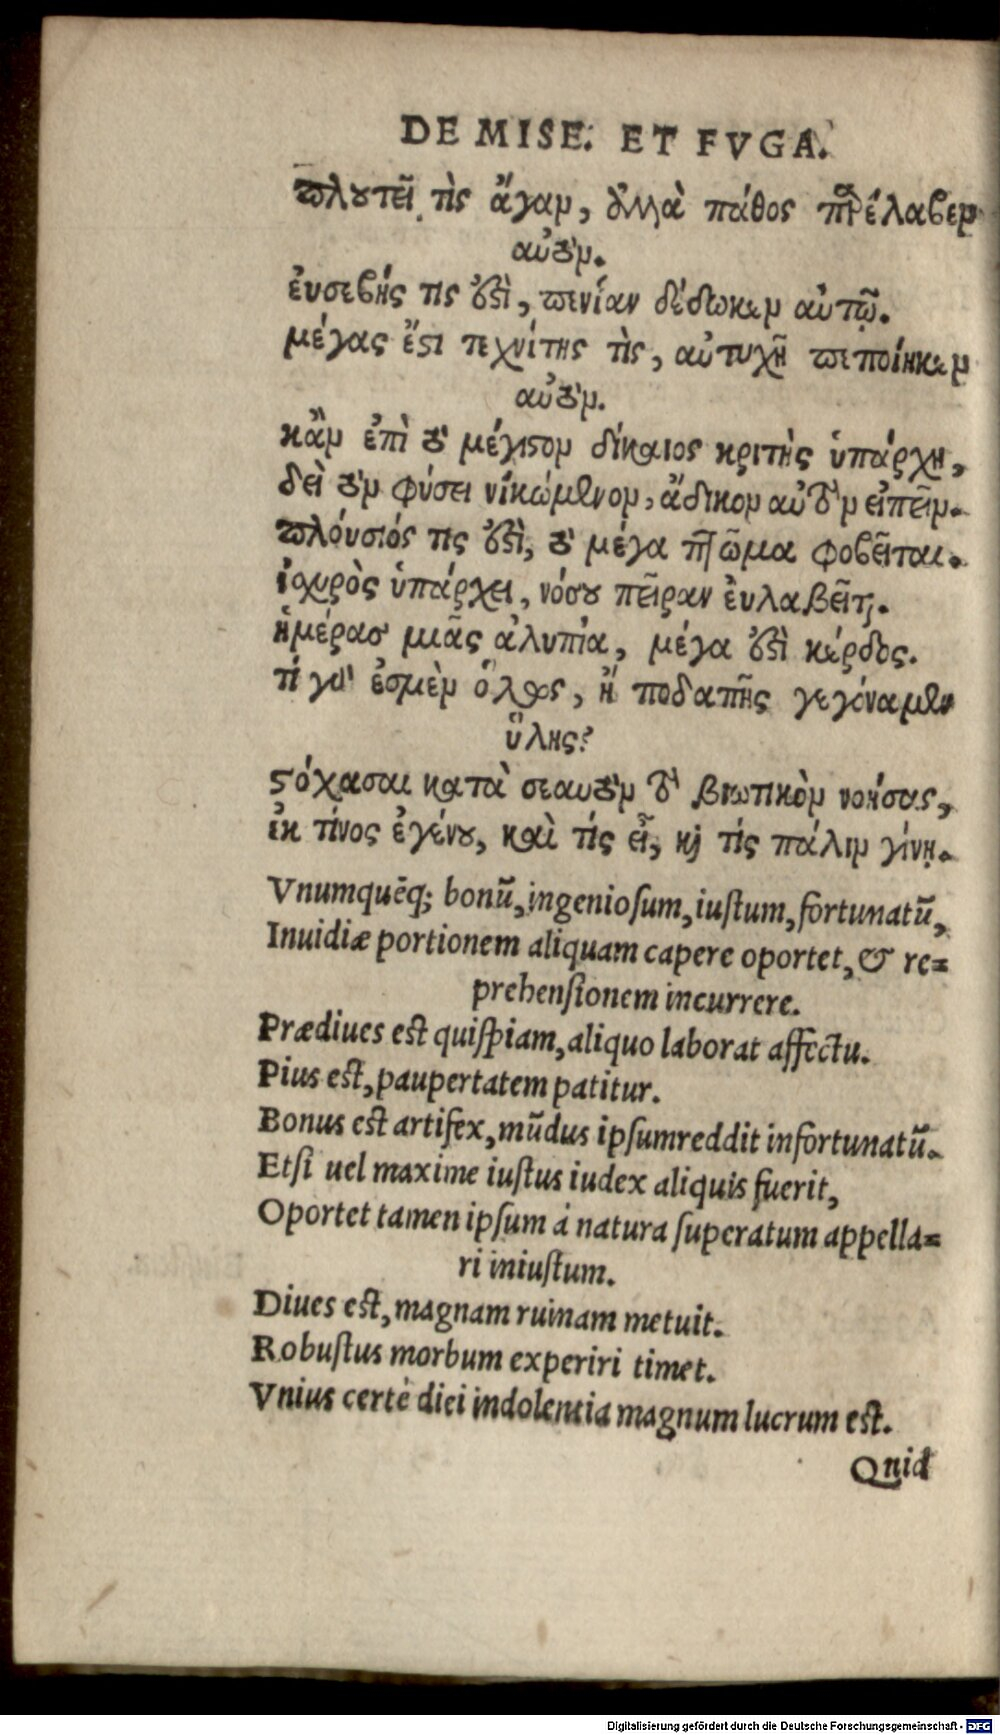 DE MISE. ET FVGA.
πλουτεῖ τὶς ἄγαν, ἀλλὰ πάθος παρέλαβεν
αὐτόν.
ἐυσεβής τις ἐστὶ, πενίαν δέδωκεν αὐτῷ.
μέγας ἔστι τεχνίτης τὶς, αὐτυχῆ πεποίηκεν
αὐτόν.
κἂν ἐπὶ τὸ μέγιστον δίκαιος κριτὴς ὑπάρχῃ,
δεῖ τὸν φύσει νικώμενον, ἄδικον αὐτὸν εἰπεῖν.
πλόυσιός τις ἐστὶ, τὸ μέγα πτῶμα φοβεῖται.
ἰσχυρὸς ὑπάρχει, νόσου πεῖραν ἐυλαβεῖται.
ἡμέρασ μιᾶς ἀλυπία, μέγα ἐστὶ κέρδος.
τί γὰρ ἐσμὲν ὅλως, ἢ ποδαπῆς γεγόναμεν
ὕλης?
στόχασαι κατὰ σεαυτὸν τὸ βιωτικὸν νοήσας,
ἐκ τίνος ἐγένου, καὶ τίς εἶ, καὶ τίς πάλιν γίνῃ.
Vnumquēq; bonū, ingeniosum, iustum, fortunatū,
Inuidiæ portionem aliquam capere oportet, & re=
prehensionem incurrere.
Prædiues est quispiam, aliquo laborat affectu.
Pius est, paupertatem patitur.
Bonus est artifex, mūdus ipsum reddit infortunatū.
Etsi uel maxime iustus iudex aliquis fuerit,
Oportet tamen ipsum à natura superatum appella=
ri iniustum.
Diues est, magnam ruinam metuit.
Robustus morbum experiri timet.
Vnius certè diei indolentia magnum lucrum est.
Quid
Digitalisierung gefördert durch die Deutsche Forschungsgemeinschaft - DFG